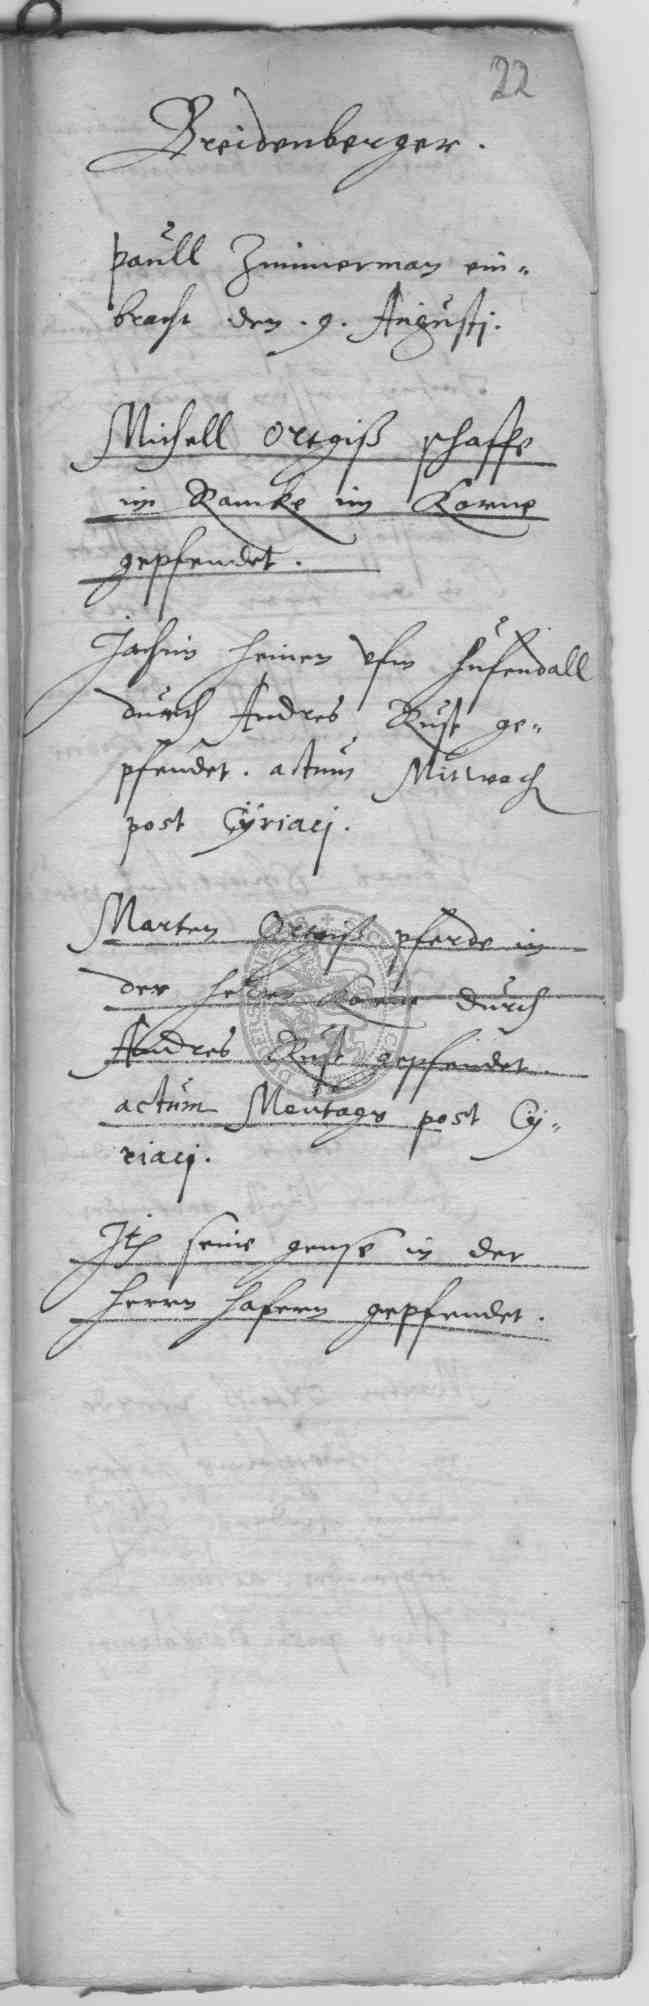 22
Breidenberger.
Paull Zimmerman ein=
bracht den .9. Augustj.
Michell Ortgiß schaffe
im Kamke im Korne
gepfendet.
Jachim Heinen vfm Hufendall
durch Andres Rust ge=
pfendet. actum Mitwoch
post Cÿriacj.
Marten Ortgiß pferde in
der Herrn Korne durch
Andres Rust gepfendet.
actum Montags post Cÿ=
riacj.
Jtem seine gense in der
Herrn Hafern gepfendet.